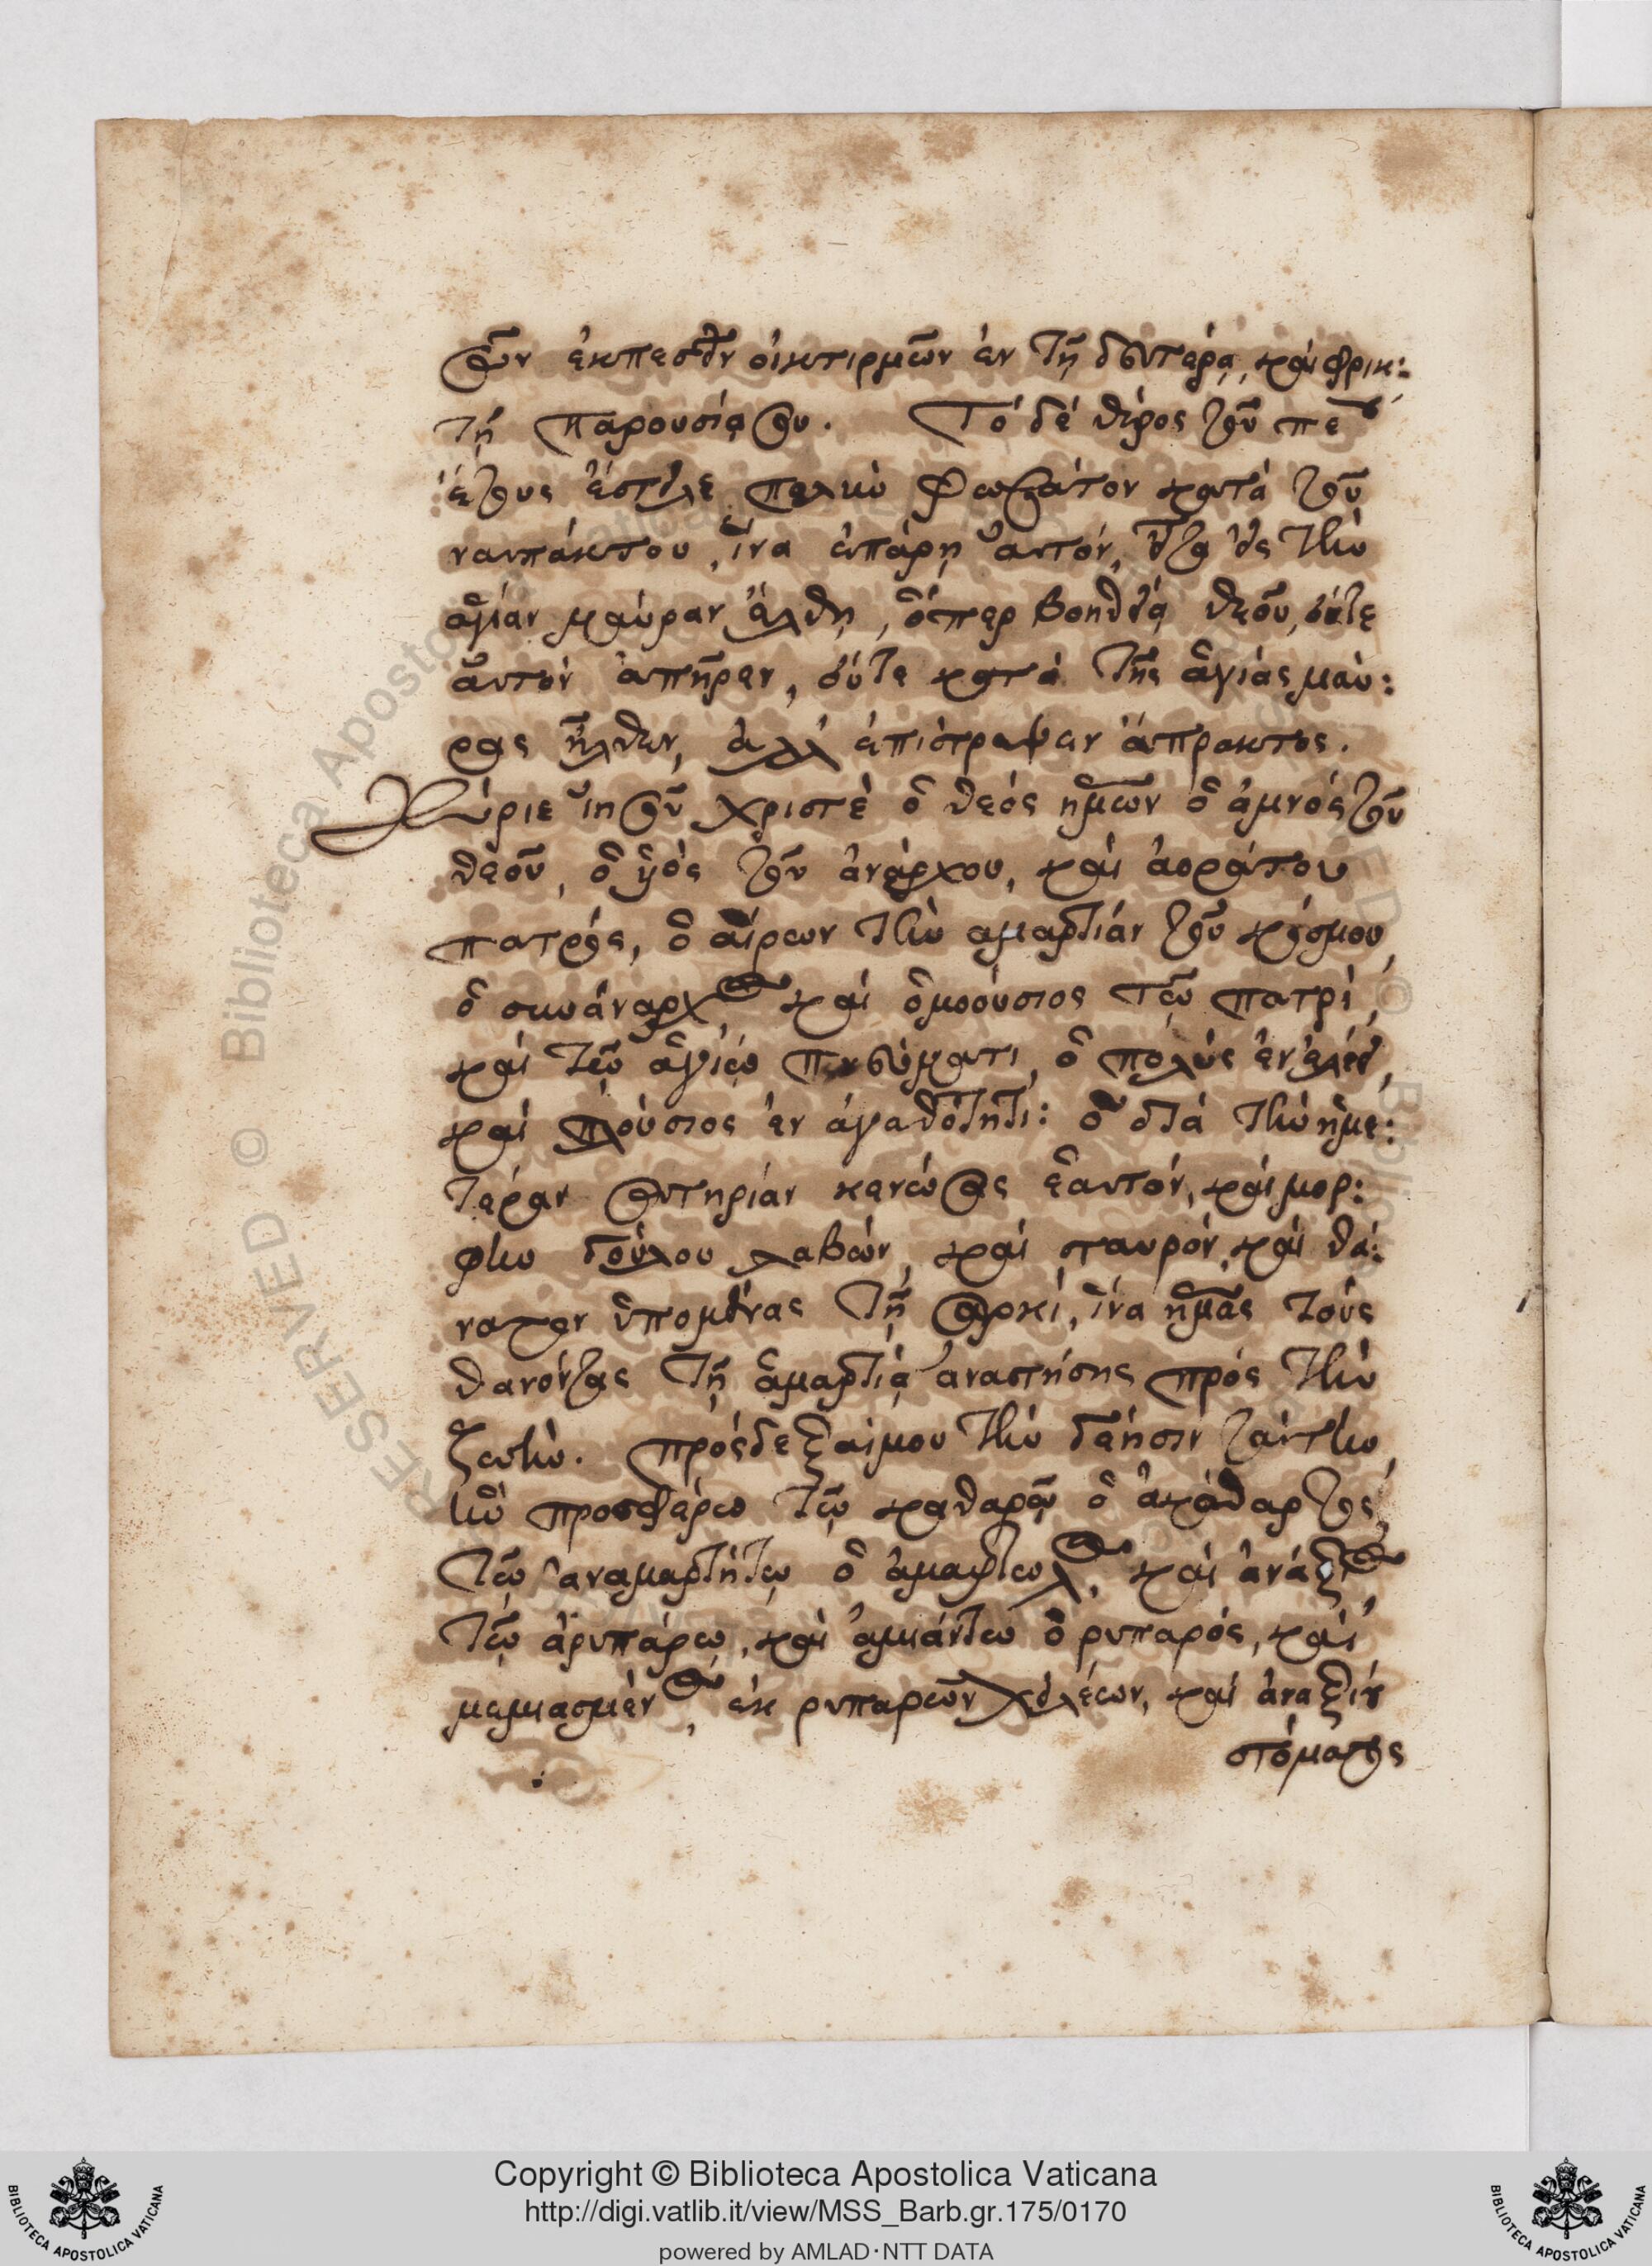 σῶν ἐκπεσεῖν οἰκτιρμῶν ἐν τῇ δευτέρᾳ, καὶ φρικ:
τῇ παρουσίᾳ σου. Τὸ δὲ θέρος τοῦ
ἔτους ἔστειλε πολὺ φωσάτον κατὰ τοῦ
ναυπάκτου, ἵνα ἐπάρῃ αὐτόν, εἶτα εἰς τὴν
ἁγίαν μαύραν ἔλθῃ, ὅπερ βοηθείᾳ θεοῦ, οὔτε
αὐτὸν ἀπῆρεν, οὔτε κατὰ τῆς ἁγίας μαύ:
ρας ἦλθεν, ἀλλ' ἐπέστρεψεν ἄπρακτος.
Κύριε ἰησοῦ χριστὲ ὁ θεός ἡμῶν ὁ ἀμνός τοῦ
θεοῦ, ὁ ὑιὸς τοῦ ἀνάρχου, καὶ ἀοράτου
πατρός, ὁ αἴρων τὴν ἁμαρτίαν τοῦ κόσμου,
ὁ συνάναρχος, καὶ ὁμοούσιος τῷ πατρὶ,
καὶ τῷ ἁγίῳ πνεύματι, ὁ πολὺς ἐν ἐλέει,
καὶ πλούσιος ἐν ἀγαθότητι: ὁ διὰ τὴν ἡμε:
τέραν σωτηρίαν κενώσας ἑαυτόν, καὶ μορ:
φὴν δούλου λαβών, καὶ σταυρόν, καὶ θά:
νατον ὑπομείνας τῇ σαρκί, ἵνα ἡμᾶς τοὺς
θανόντας τῇ ἁμαρτίᾳ ἀναστήσης πρὸς τὴν
ζωήν. πρόσδεξαί μου τὴν δέησιν ταύτην,
ἣν προσφέρω τῷ καθαρῷ ὁ ἀκάθαρτος,
τῷ ἀναμαρτήτῳ ὁ ἁμαρτωλὸς, καὶ ἀνάξιος
τῷ ἀρυπάρῳ, καὶ ἀμιάντῳ ὁ ρυπαρός, καὶ
μεμιασμένος, ἐκ ρυπαρῶν χειλέων, καὶ ἀναξίου
στόματος
Copyright © Biblioteca Apostolica Vaticana
http://digi.vatlib.it/view/MSS_Barb.gr.175/0170
powered by AMLAD·NTT DATA